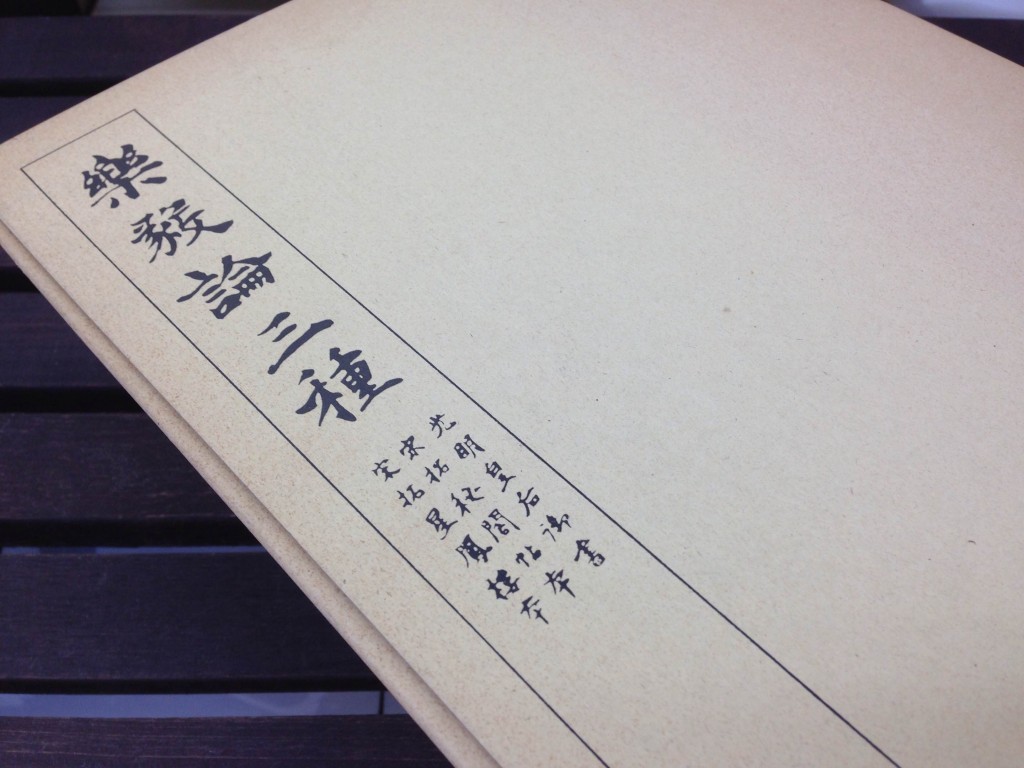 樂毅論三種
光明皇后御書
宋拓秘閣帖本
宋拓星鳳樓本